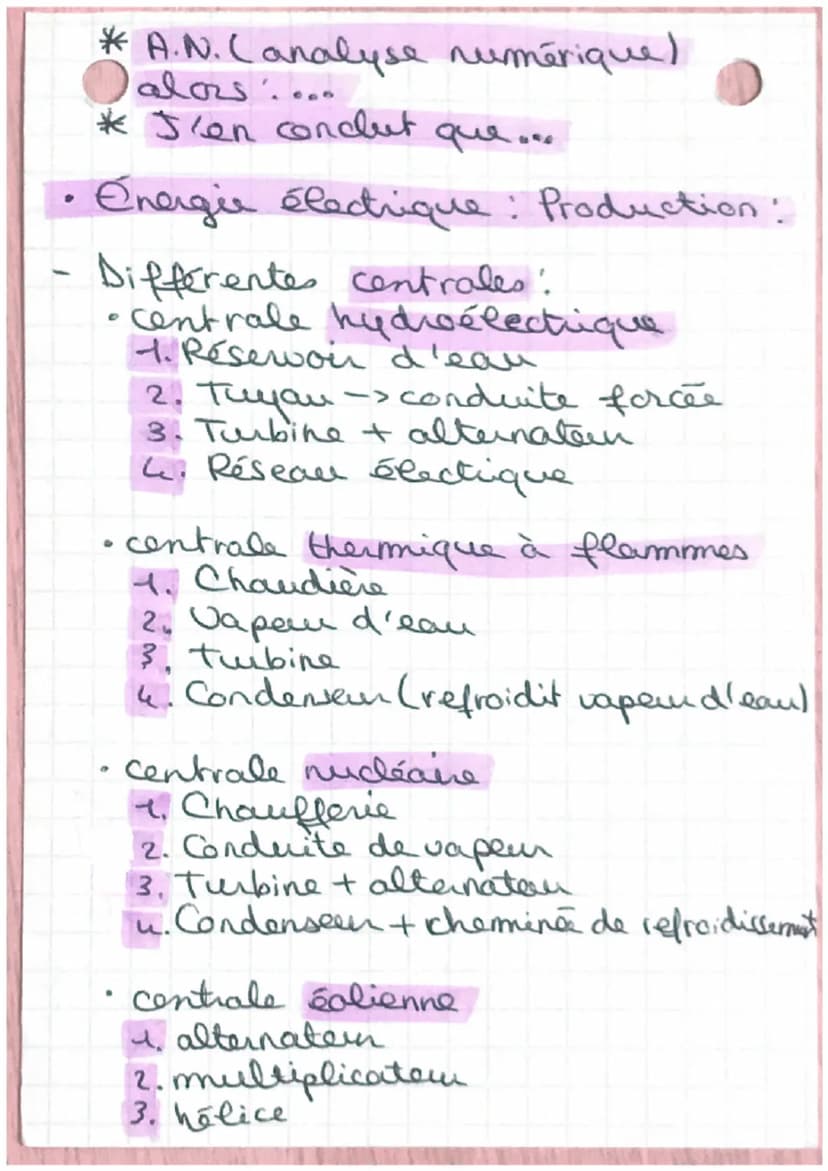 * A.N. (analyse numérique)
alors : ....
* J'en conclut que...
• Énergie électrique : Production :
- Différentes centrales :
• centrale hydroélectrique
1. Réservoir d'eau
2. Tuyau -> conduite forcée
3. Turbine + alternateur
4. Réseau électique
• centrale thermique à flammes
1. Chaudière
2. Vapeur d'eau
3. turbine
4. Condenseur (refroidit vapeur d'eau)
• centrale nucléaire
1. Chaufferie
2. Conduite de vapeur
3. Turbine + alternateur
4. Condenseur + cheminée de refroidissement
• centrale éolienne
1. alternateur
2. multiplicateur
3. hélice